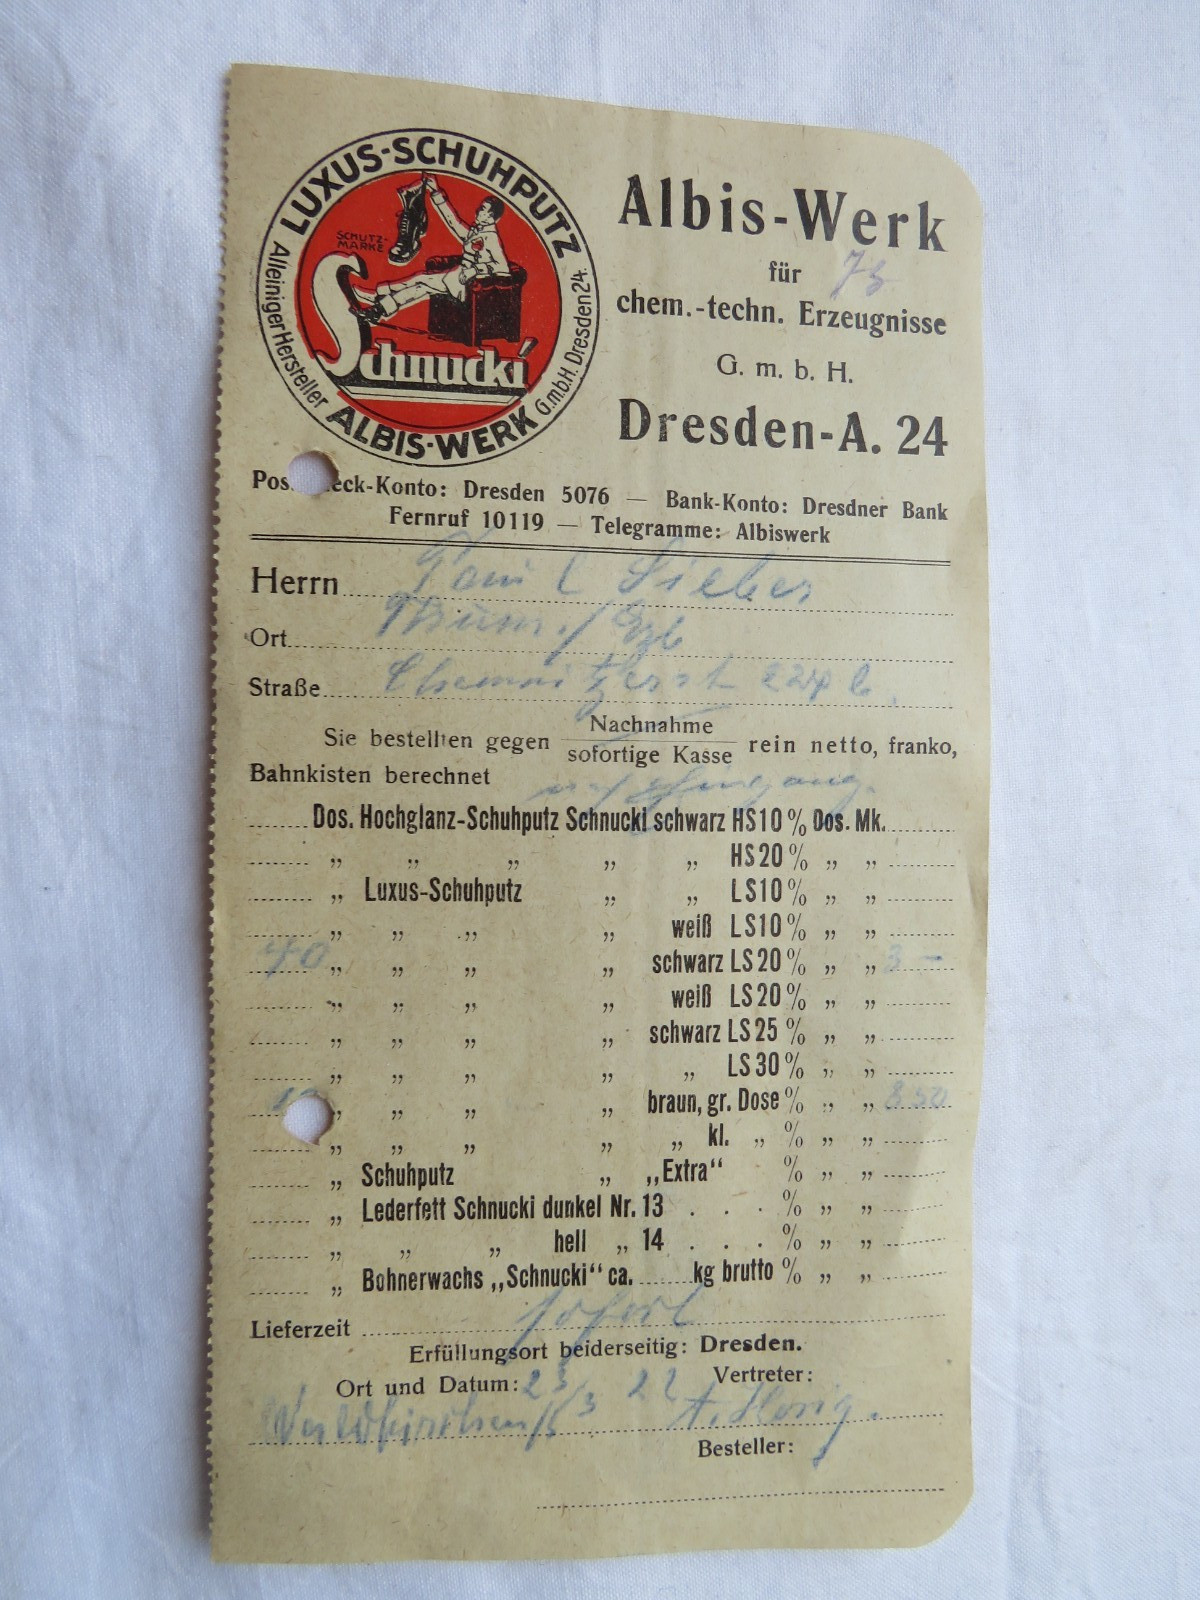 LUXUS-SCHUHPUTZ
SCHUTZ-
MARKE
Schnucki
Alleiniger Hersteller
ALBIS-WERK
G.m.b.H. Dresden 24.
Albis-Werk
für
chem.-techn. Erzeugnisse
G. m. b. H.
Dresden-A. 24
Pos eck-Konto: Dresden 5076 — Bank-Konto: Dresdner Bank
Fernruf 10119 — Telegramme: Albiswerk
Herrn Paul Sieber
Ort
Straße Chemnitzerst
Nachnahme
Sie bestellten gegen rein netto, franko,
sofortige Kasse
Bahnkisten berechnet
Dos. Hochglanz-Schuhputz Schnucki schwarz HS10 % Dos. Mk.
„ „ „ „ „ HS20 % „ „
„ Luxus-Schuhputz „ „ LS10 % „ „
„ „ „ „ weiß LS10 % „ „
40 „ „ „ „ schwarz LS20 % „ „ 3 –
„ „ „ „ weiß LS20 % „ „
„ „ „ „ schwarz LS25 % „ „
„ „ „ „ „ LS30 % „ „
„ „ „ „ braun, gr. Dose % „ „ 8 50
„ „ „ „ „ kl. „ % „ „
„ Schuhputz „ „Extra“ % „ „
„ Lederfett Schnucki dunkel Nr. 13 . . . % „ „
„ „ „ hell „ 14 . . . % „ „
„ Bohnerwachs „Schnucki“ ca. kg brutto % „ „
Lieferzeit sofort
Erfüllungsort beiderseitig: Dresden.
Ort und Datum: 23/3 22 Vertreter:
Waldkirchen
Besteller: